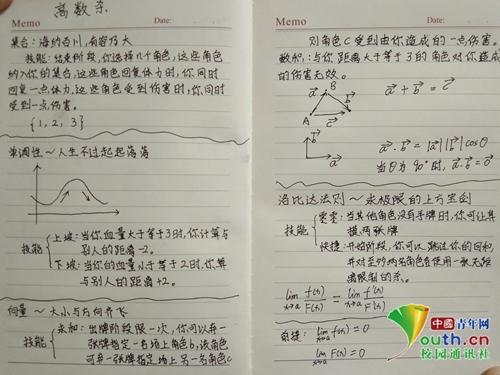 离数杀
Memo
Date:
集合:海纳百川,有容乃大
技能:结束阶段,你选择n个角色,这些角色
纳入你的集合,这些角色回复体力时,你同时
回复一点体力,这些角色受到伤害时,你同时
受到一点伤害。
{1, 2, 3}
单调性~人生不过起起落落
技能
上坡:当你血量大于等于3时,你计算与
别人的距离-2。
下坡:当你的血量小于等于2时,你算
与别人的距离+2。
向量~大小与方向齐飞
技能
求和:出牌阶段限一次,你可以弃一
张牌指定一名场上角色b,该角色
可弃一张牌指定场上另一名角色c
Memo
Date:
则角色c受到由你造成的一点伤害。
数积:与你距离大于等于3的角色对你造成
的伤害无效。
B
a
b
A
c
C
a + b = c
b
a
a · b = |a||b| cosθ
当θ为90°时, a · b = 0
洛比达法则~求极限的上方宝剑
技能
卖卖:当其他角色没有手牌时,你可让其
摸两张牌
快捷:开始阶段,你可以跳过你的回合,
并对至多两名角色各使用一张无距
离限制的杀。
lim x→a f(x)/F(x) = lim x→a f'(x)/F'(x)
前提: lim x→a f(x) = 0
lim x→a F(x) = 0
中国青年网
Youth.cn
校园通讯社